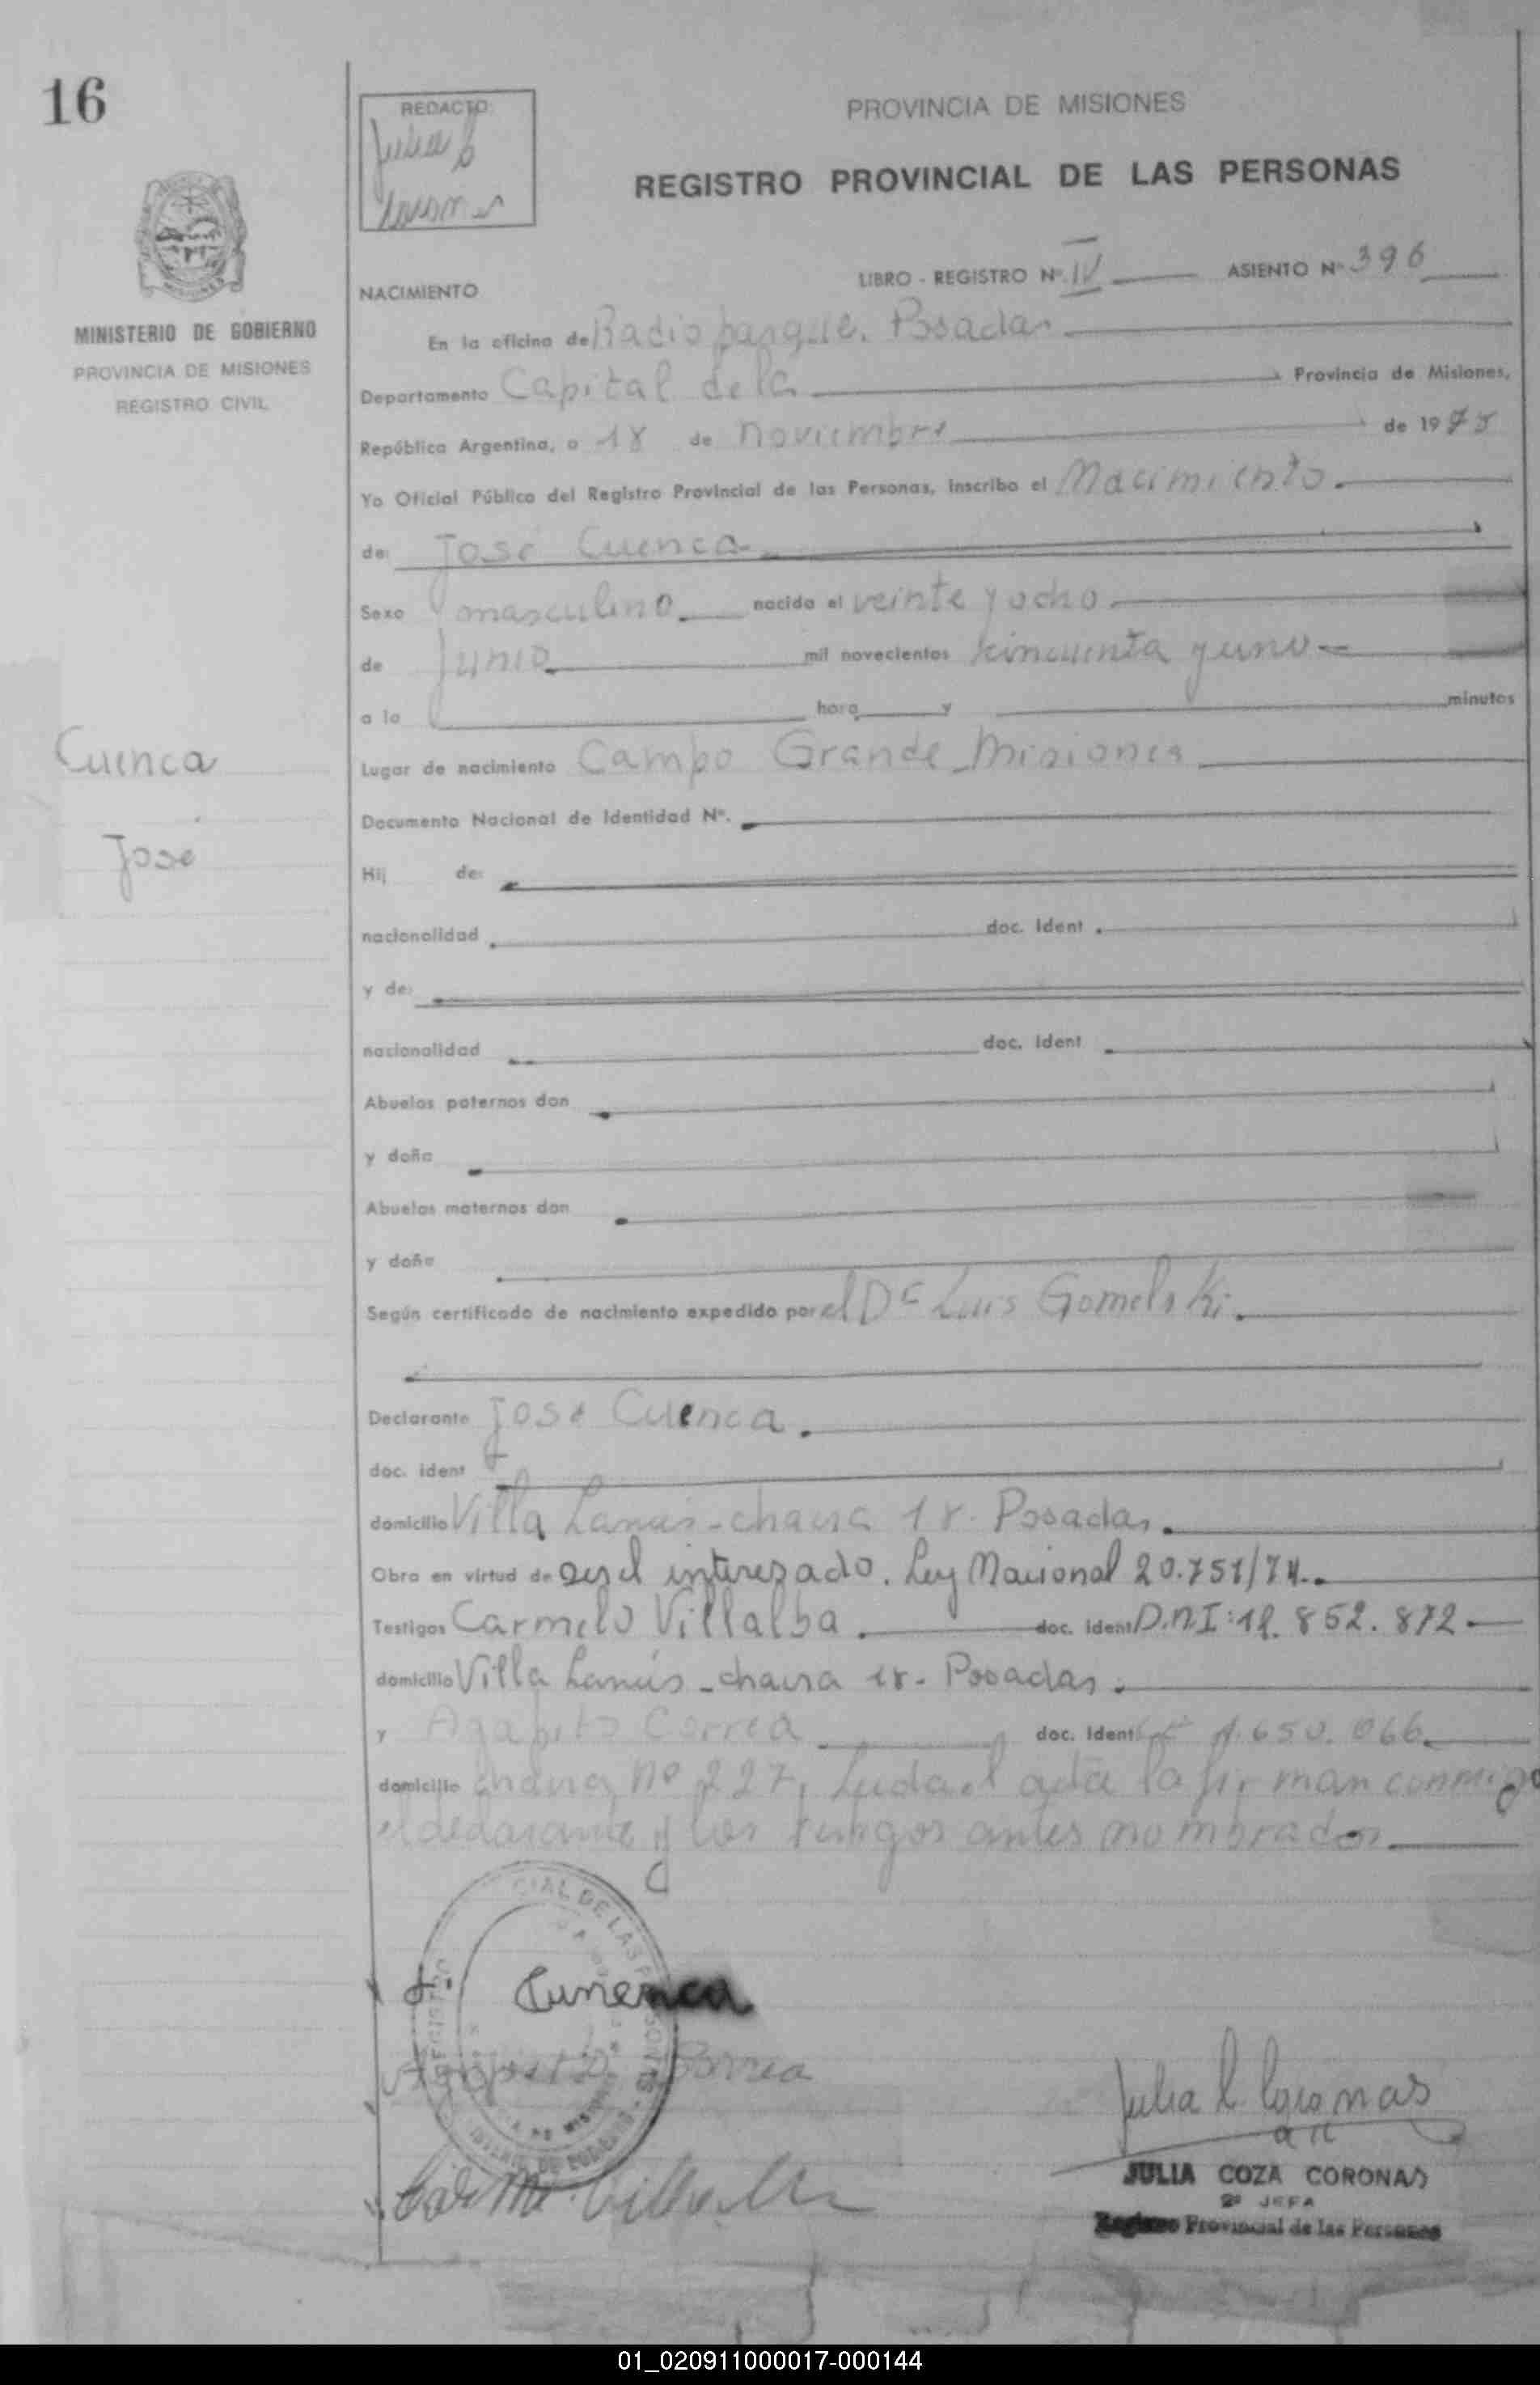 16
REDACTO
Julia C
Coronas
PROVINCIA DE MISIONES
REGISTRO PROVINCIAL DE LAS PERSONAS
MINISTERIO DE GOBIERNO
PROVINCIA DE MISIONES
REGISTRO CIVIL
LIBRO - REGISTRO Nº IV ASIENTO Nº 396
NACIMIENTO
En la oficina de Radio parque. Posadas
Departamento Capital de la Provincia de Misiones,
República Argentina, a 18 de noviembre de 1975
Yo Oficial Público del Registro Provincial de las Personas, inscribo el Nacimiento.
de: José Cuenca
Sexo masculino nacido el veinte y ocho
de Junio mil novecientos cincuenta y uno
a la hora y minutos
Cuenca
José
Lugar de nacimiento Campo Grande Misiones
Documento Nacional de Identidad Nº.
Hij de:
nacionalidad doc. Ident
y de:
nacionalidad doc. Ident
Abuelos paternos don
y doña
Abuelos maternos don
y doña
Según certificado de nacimiento expedido por el Dr Luis Gomelski.
Declarante José Cuenca.
doc. ident
domicilio Villa Lanús - chacra 18. Posadas.
Obra en virtud de ser el interesado. Ley Nacional 20.751/74.
Testigos Carmelo Villalba. doc. Ident D.N.I: 12.852.872
domicilio Villa Lanús - chacra 18. Posadas.
y Agapito Correa doc. Ident 1.650.066
domicilio chacra nº 227, Leída el acta la firman conmigo
el declarante y los testigos antes nombrados
CIAL DE LAS PERSONAS
J. Cunenca
Agapito Correa
Carme Villalba
Julia C. Coronas
JULIA COZA CORONAS
2º JEFA
Registro Provincial de las Personas
01_020911000017-000144